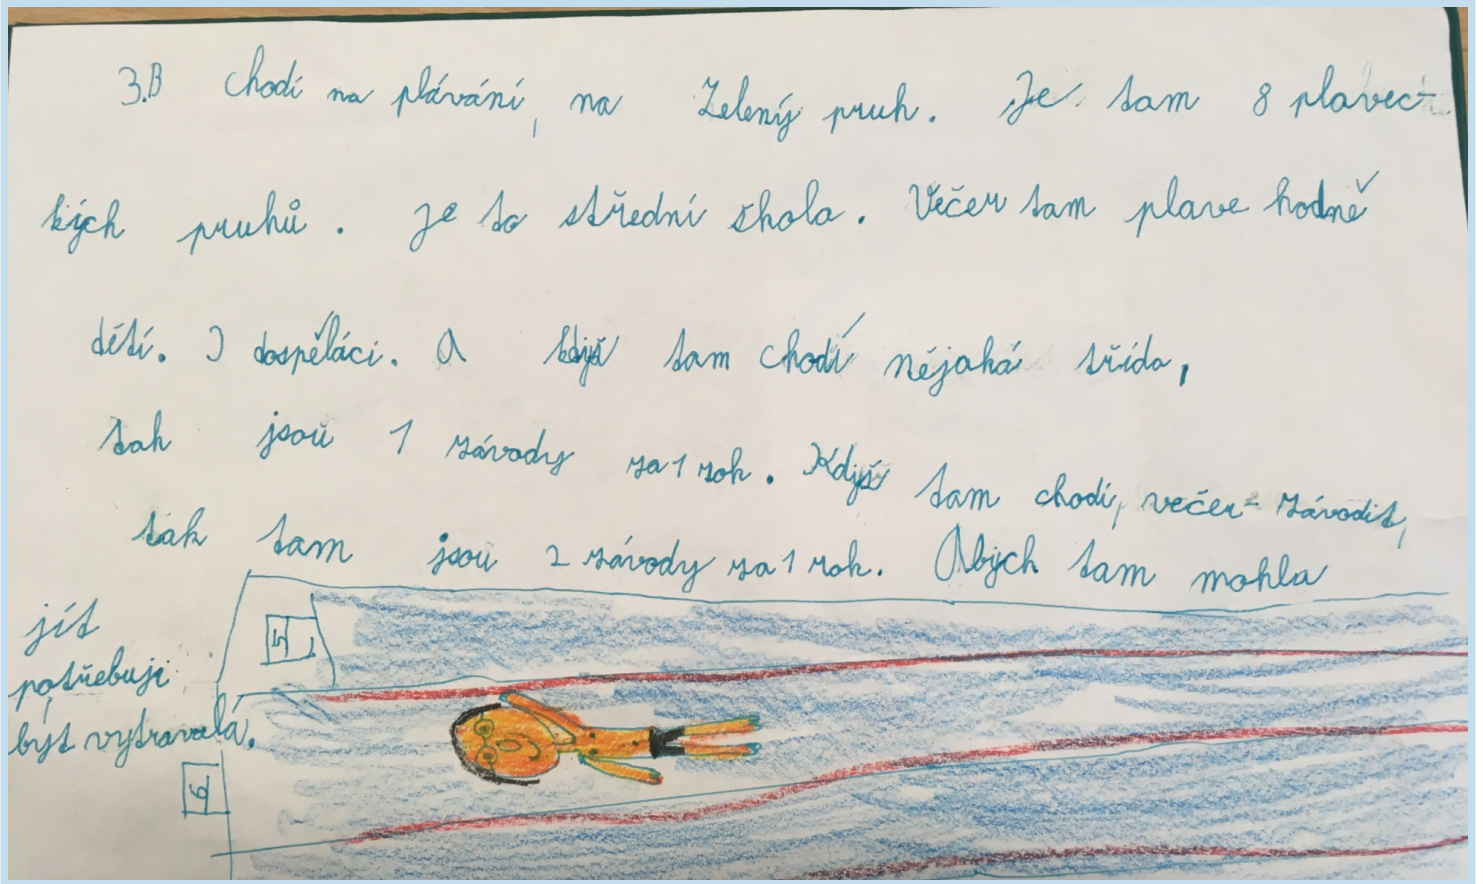 3.B chodí na plávání, na Zelený pruh. Je tam 8 plavec-
kých pruhů. Je to střední škola. Večer tam plave hodně
dětí. I dospěláci. A když tam chodí nějaká třída,
tak jsou 1 závody za 1 rok. Když tam chodí, večer- závodit,
tak tam jsou 2 závody za 1 rok. Abych tam mohla
jít
potřebuji
být vytravalá.
5
6